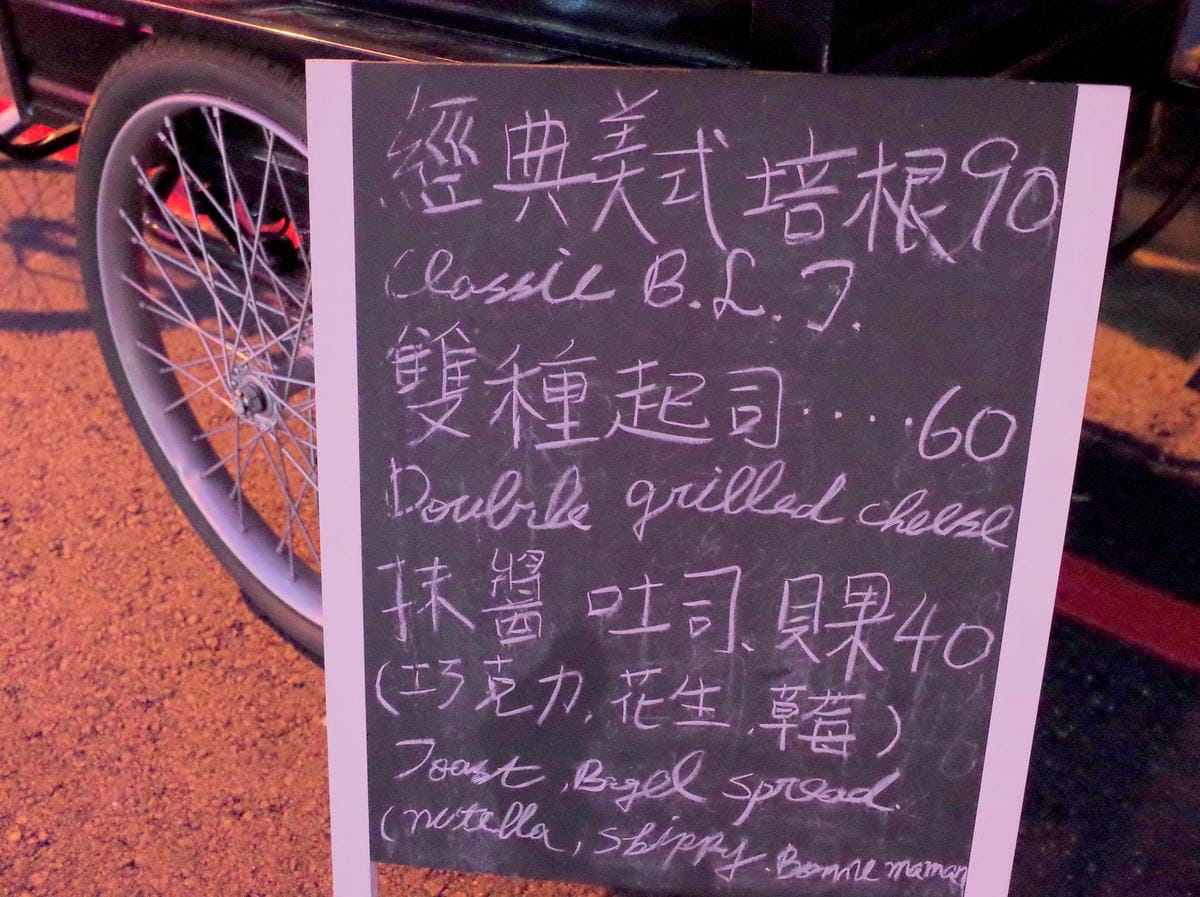 經典美式培根90
Classic B.L.T.
雙種起司....60
Double grilled cheese
抹醬 吐司、貝果40
(巧克力、花生、草莓)
Toast, Bagel spread.
(nutella, skippy, Bonne maman